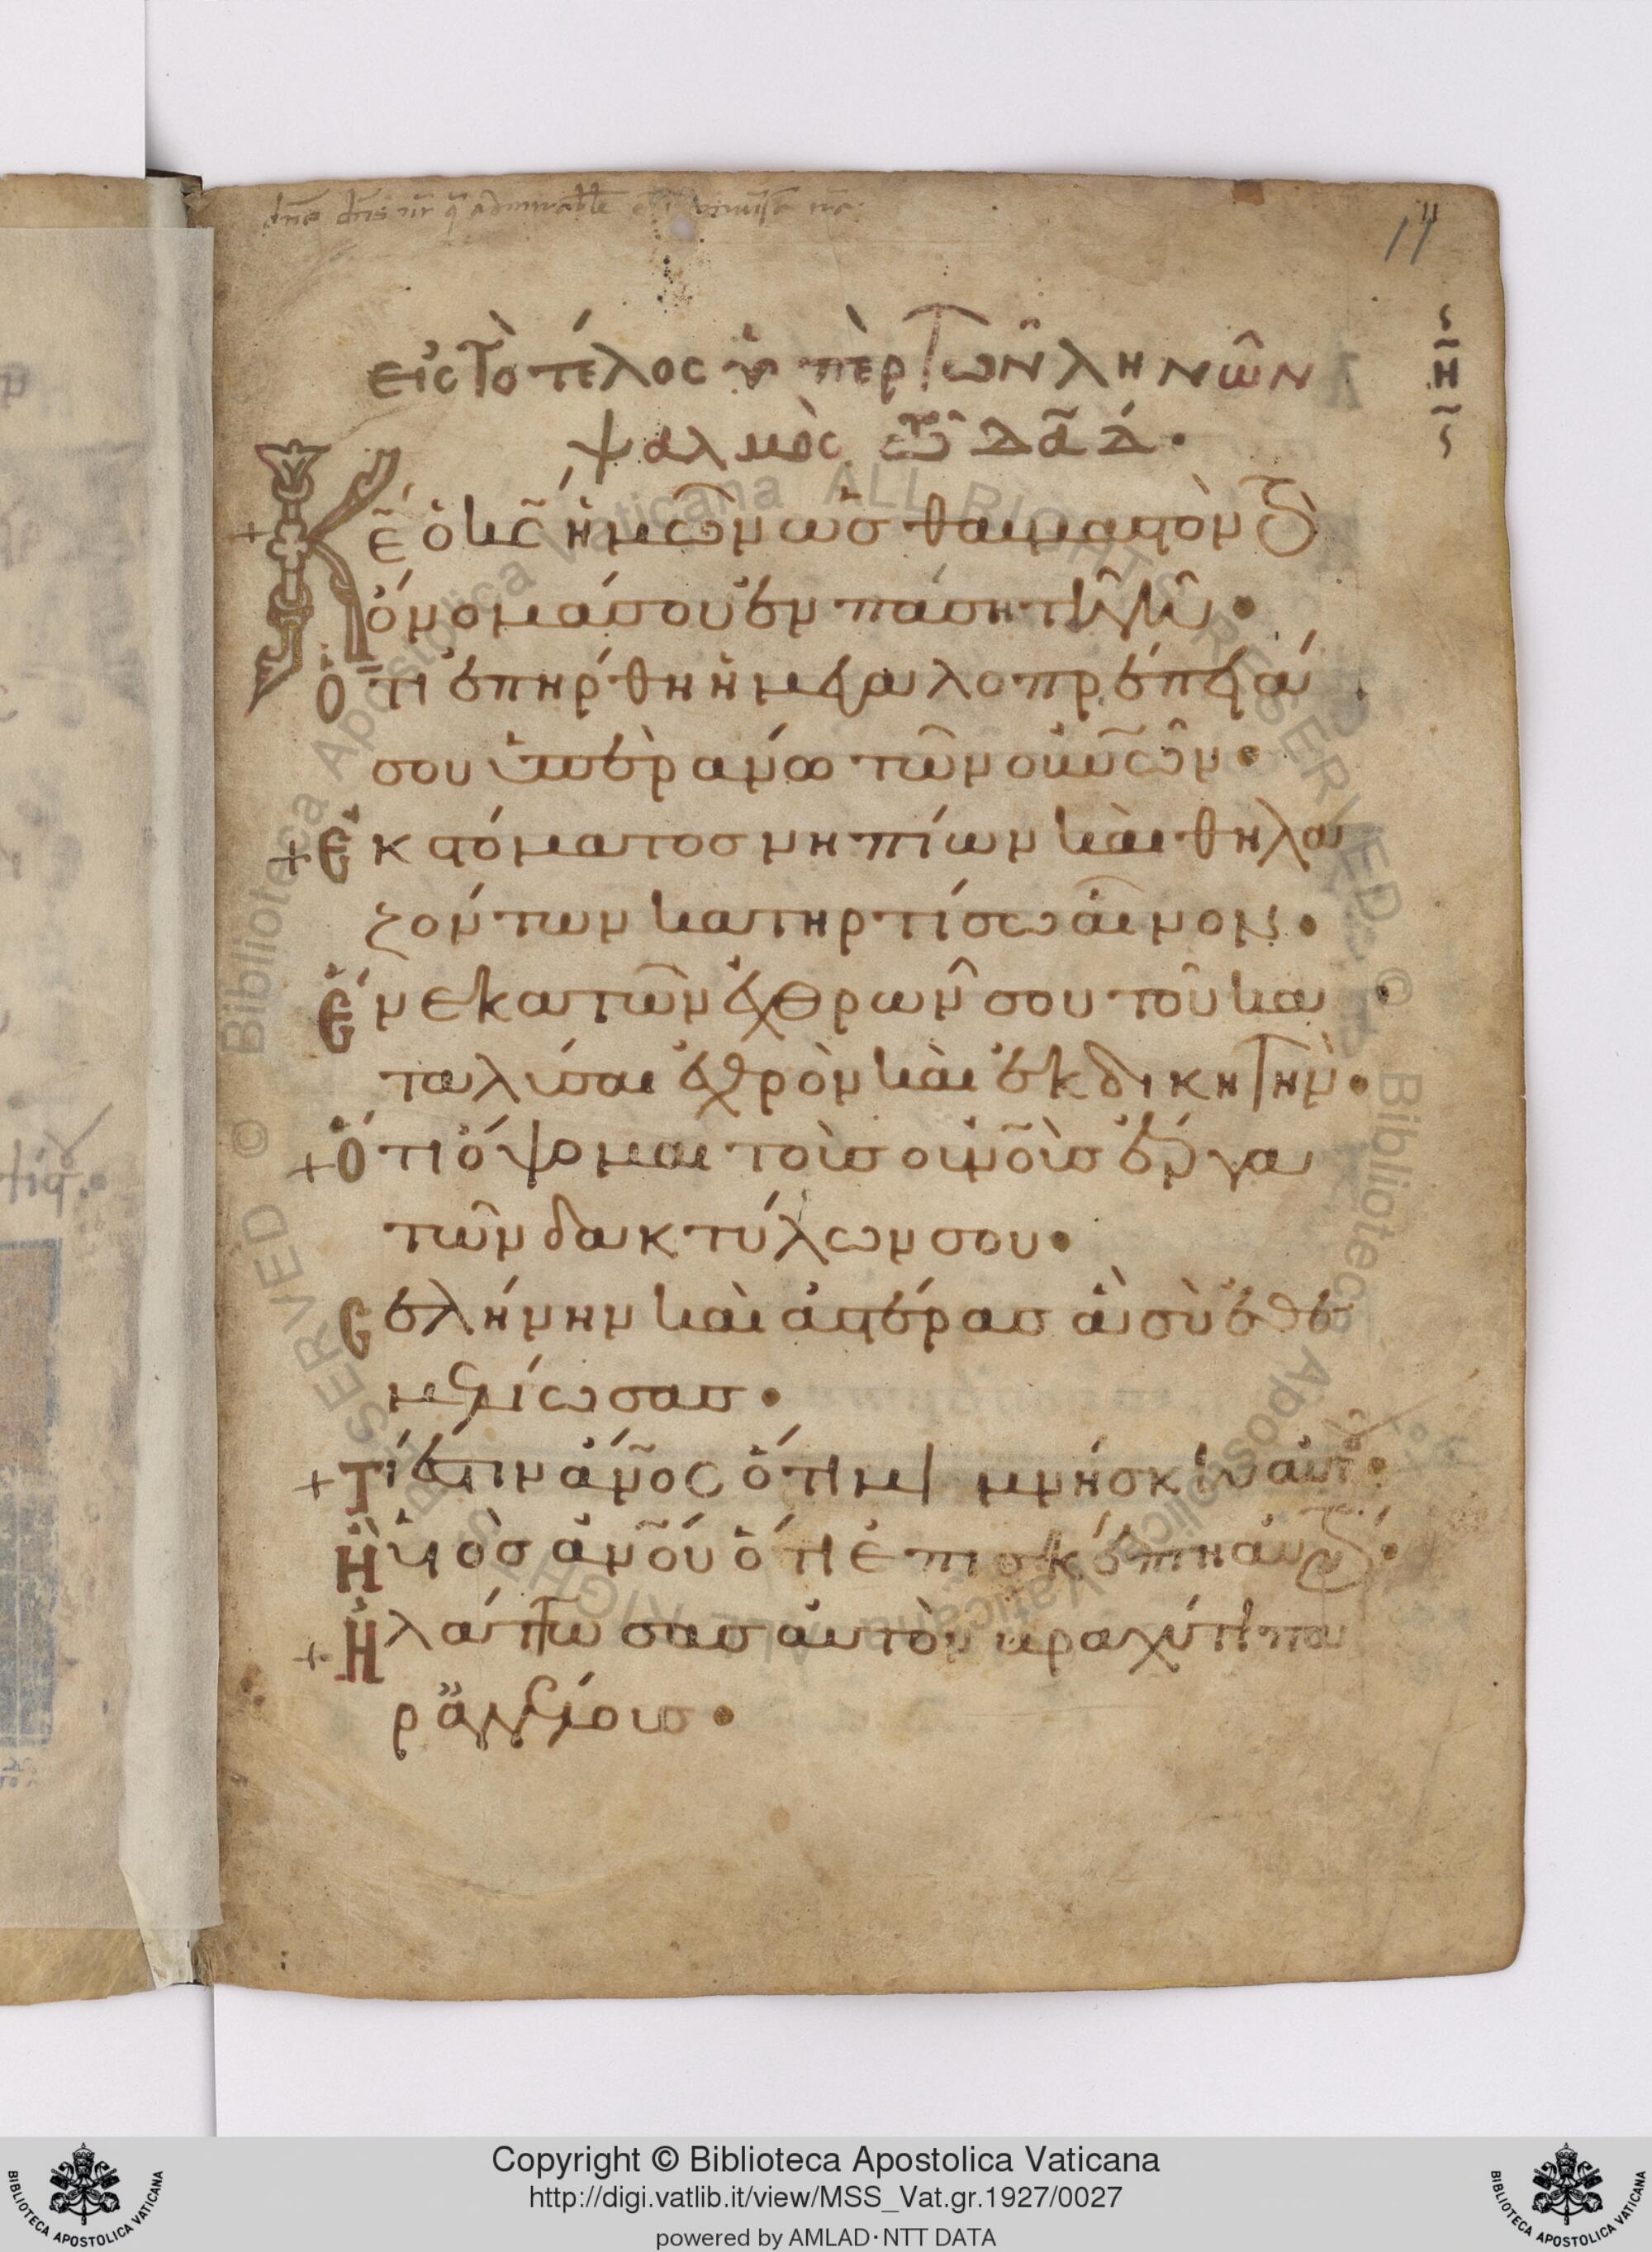 11
εἰς τὸ τέλος ὑπὲρ τῶν ληνῶν
Η
ψαλμὸς τῶ δᾱδ·
Κε̄ ὁ κς̄ ἡμῶν ὡς θαυμαστὸν τὸ
ὄνομά σου ἐν πάση τῆ γῆ·
Ὅτι ἐπήρθη ἡ μεγαλοπρέπειά
σου ὑπεράνω τῶν οὐνῶν·
+ Ἐκ στόματος νηπίων καὶ θηλα
ζόντων κατηρτίσω αἶνον·
Ἕνεκα τῶν ἐχθρῶν σου τοῦ κα
ταλύσαι ἐχθρὸν καὶ ἐκδικητὴν·
+ Ὅτι ὄψομαι τοὺς οὐνοὺς ἔργα
τῶν δακτύλων σου·
Σελήνην καὶ ἀστέρας ἃ σὺ ἐθε
μελίωσας·
+ Τί ἐστιν ἄνος ὅτι μιμνήσκη αὐτοῦ·
Ἢ υἱὸς ἀνου ὅτι ἐπισκέπτη αὐτόν·
+ Ἠλάττωσας αὐτὸν βραχύ τι πα
ρ' ἀγγέλους·
Copyright © Biblioteca Apostolica Vaticana
http://digi.vatlib.it/view/MSS_Vat.gr.1927/0027
powered by AMLAD·NTT DATA
BIBLIOTECA APOSTOLICA VATICANA
BIBLIOTECA APOSTOLICA VATICANA